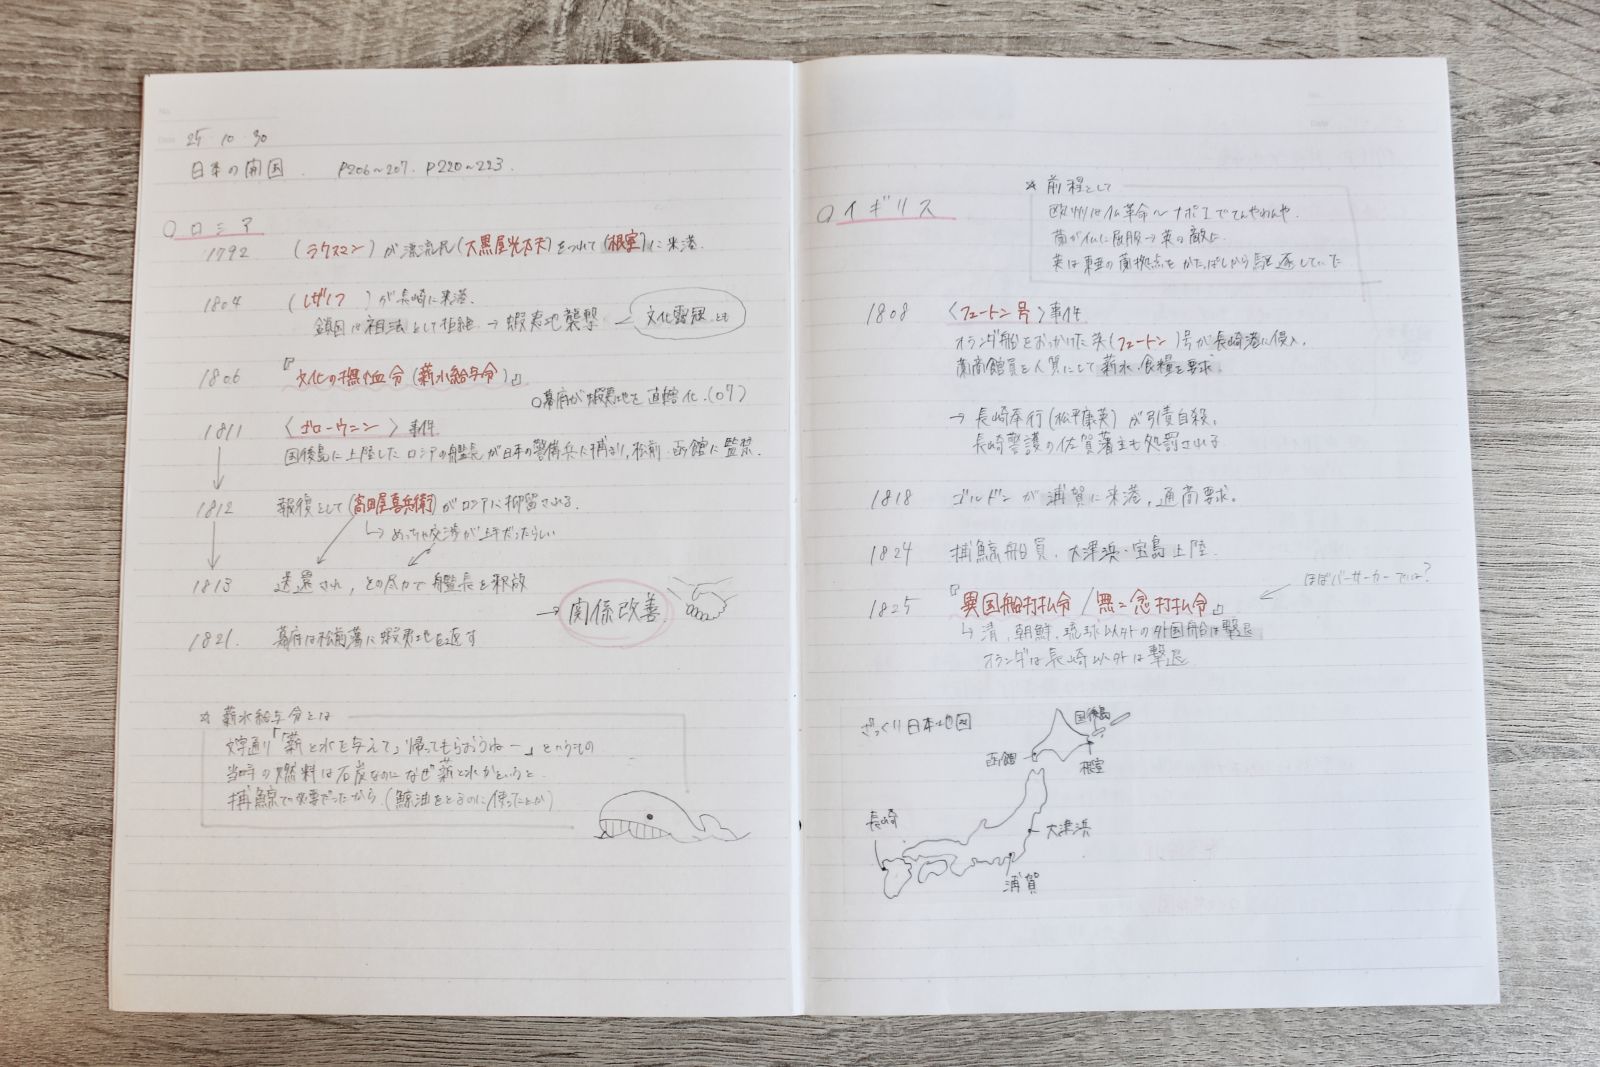 25 10 30
日本の開国. P206〜207. P220〜223.
○ロシア
1792 (ラクスマン)が漂流民(大黒屋光太夫)をつれて(根室)に来港.
1804 (レザノフ )が長崎に来港.
鎖国は祖法として拒絶 → 蝦夷地襲撃
文化露寇 とも
1806 『文化の撫恤令(薪水給与令)』
○幕府が蝦夷地を直轄化.(07)
1811 〈ゴローウニン〉事件
国後島に上陸したロシアの艦長が日本の警備兵に捕まり,松前・函館に監禁.
1812 報復として(高田屋喜兵衛)がロシアに抑留される.
↳めっちゃ交渉が上手だったらしい
1813 送還され,その尽力で艦長を釈放
→ 関係改善.
1821. 幕府は松前藩に蝦夷地を返す
☆ 薪水給与令とは
文字通り「薪と水を与えて,帰ってもらおうねー」というもの
当時の燃料は石炭なのになぜ薪と水かというと.
捕鯨で必要だったから.(鯨油をとるのに使ったとか)
○イギリス
☆ 前程として
欧州は仏革命〜ナポエでてんやわんや.
蘭が仏に屈服→英の敵に.
英は東亜の蘭拠点をかたっぱしから駆逐していた
1808 〈フェートン号〉事件
オランダ船をおっかけた英(フェートン)号が長崎港に侵入.
蘭商館員を人質にして薪水・食糧を要求
→ 長崎奉行(松平康英)が引責自殺,
長崎警護の佐賀藩主も処罰される
1818 ゴルドンが浦賀に来港,通商要求。
1824 捕鯨船員.大津浜・宝島上陸.
ほぼバーサーカーでは?
1825 『異国船打払令/無二念打払令』
↳ 清,朝鮮,琉球以外の外国船は撃退
オランダは長崎以外は撃退
ざっくり日本地図
国後島
函館
根室
長崎
大津浜
浦賀